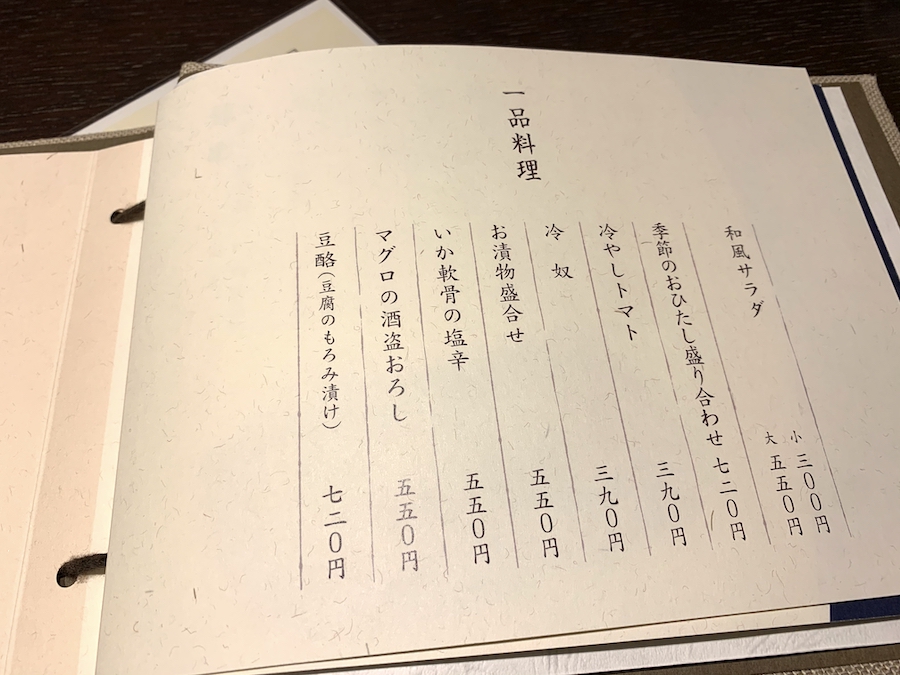 一品料理
和風サラダ 小 三〇〇円
大 五五〇円
季節のおひたし盛り合わせ 七二〇円
冷やしトマト 三九〇円
冷奴 三九〇円
お漬物盛合せ 五五〇円
いか軟骨の塩辛 五五〇円
マグロの酒盗おろし 五五〇円
豆酩(豆腐のもろみ漬け) 七二〇円